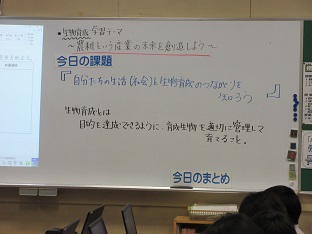 ・生物育成 学習テーマ
～農耕という産業の未来を創造しよう～
今日の課題
『自分たちの生活(社会)と生物育成のつながりを
知ろう
生物育成とは
目的を達成できるように、育成生物を適切に管理して
育てること。
今日のまとめ